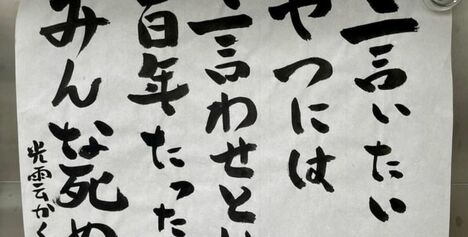 言いたい
やつには
言わせと
百年たった
みんな死ぬ
光雲がく